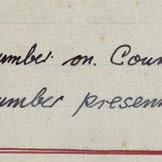 umber on. Coun
umber presen